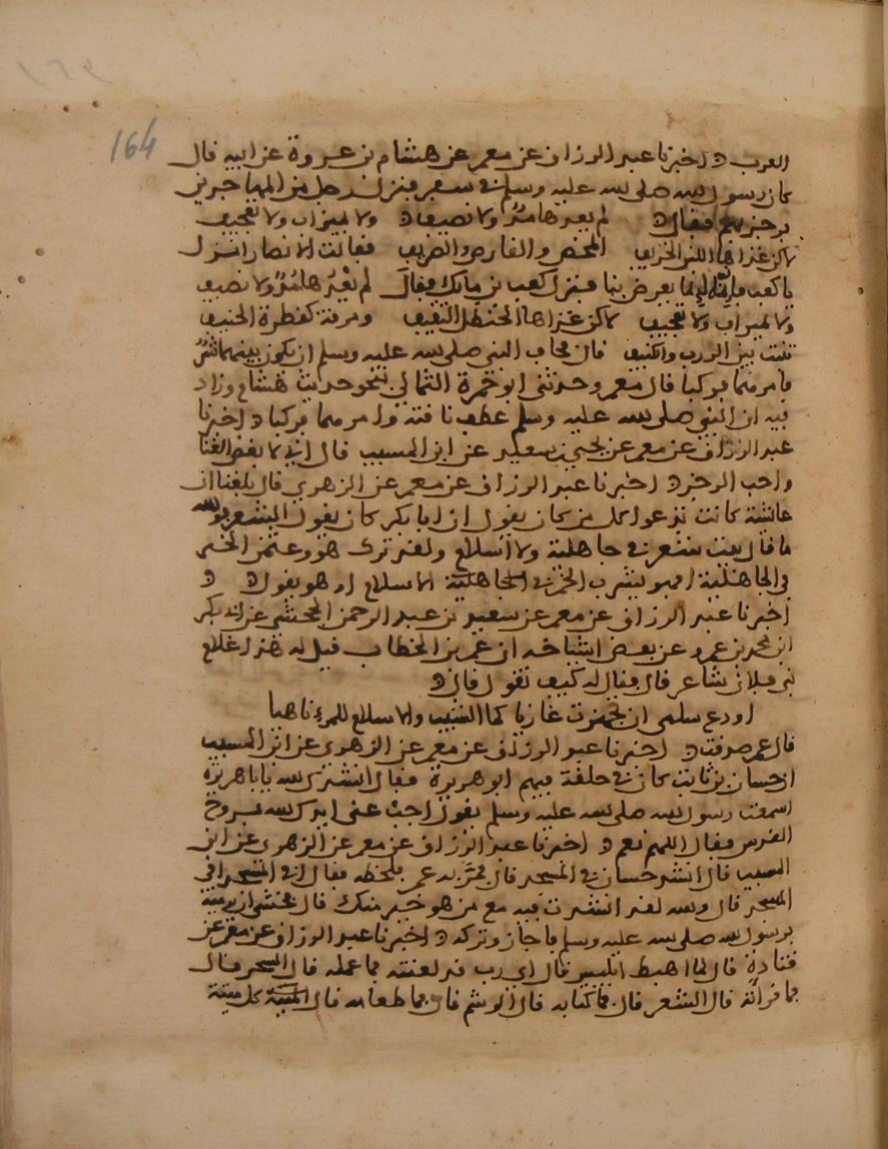 164
العرب اخبرنا عبد الرزاق عن معمر عن هشام بن عروة عن ابيه قال
كان رسول الله صلى الله عليه وسلم في سفر فنزل رجل من المهاجرين
فقال لم يغدها مد ولا نصيف ولا تميرات ولا تعجيف
لاكن غذاها اللبن الخريف المحض والقارص والصريف فقالت الانصار انزل
يا كعب فانما يعرض بنا فنزل كعب بن مالك فقال لم يغدها مد ولا نصيف
ولا تميرات ولا تعجيف لاكن غذاها الحنظل النقيف ومذقة كطرة الخنيف
تبيت بين الزرب والكنيف قال فخاف النبي صلى الله عليه وسلم ان يكون بينهما شي
فامرهما فركبا قال معمر وحدثني ابو حمزة الثمالي بنحو حديث هشام وزاد
فيه ان النبي صلى الله عليه وسلم عطف ناقته وامرهما فركبا اخبرنا
عبد الرزاق عن معمر عن يحيى بن سعيد عن ابن المسيب قال اني لا بغض الغنا
واحب الرجز اخبرنا عبد الرزاق عن معمر عن الزهري قال بلغنا ان
عائشة كانت تدعوا كل من كان يقول ان ابا بكر كان يقول الشعر والله
ما قال بيت شعر في جاهلية ولا اسلام ولقد ترك هو وعثمن الخمر
في الجاهلية يشرب الخمر في الجاهلية الاسلام او هو يقول
اخبرنا عبد الرزاق عن معمر عن سعيد بن عبد الرحمن الجحشي عن ابي بكر
ابن محمد بن عمرو عن بعض اشياخه ان عمر بن الخطاب قيل له هذا غلام
بني فلان شاعر قال فقال له كيف تقول قال
اودع سلمى ان تجهزت غازيا كفا الشيب والاسلام للمرء ناهيا
قال عمر صدقت اخبرنا عبد الرزاق عن معمر عن الزهري عن ابن المسيب
ان حسان بن ثابت كان في حلقة فيهم ابو هريرة فقال انشدك الله يا با هريرة
اسمعت رسول الله صلى الله عليه وسلم يقول اجب عني ايدك الله بروح
القدس فقال اللهم نعم اخبرنا عبد الرزاق عن معمر عن الزهري عن ابن
المسيب قال انشد حسان في المسجد قال فمر به عمر فلحظه فقال افي المسجد افي
المسجد قال والله لقد انشدت فيه مع من هو خير منك قال فخشي ان يرميه
برسول الله صلى الله عليه وسلم فاجاز وتركه اخبرنا عبد الرزاق عن معمر عن
قتادة قال لما اهبط ابليس قال اي رب قد لعنته فما عمله قال السحر قال
فما قرانه قال الشعر قال فما كتابه قال الوشم قال فما طعامه قال كل ميتة